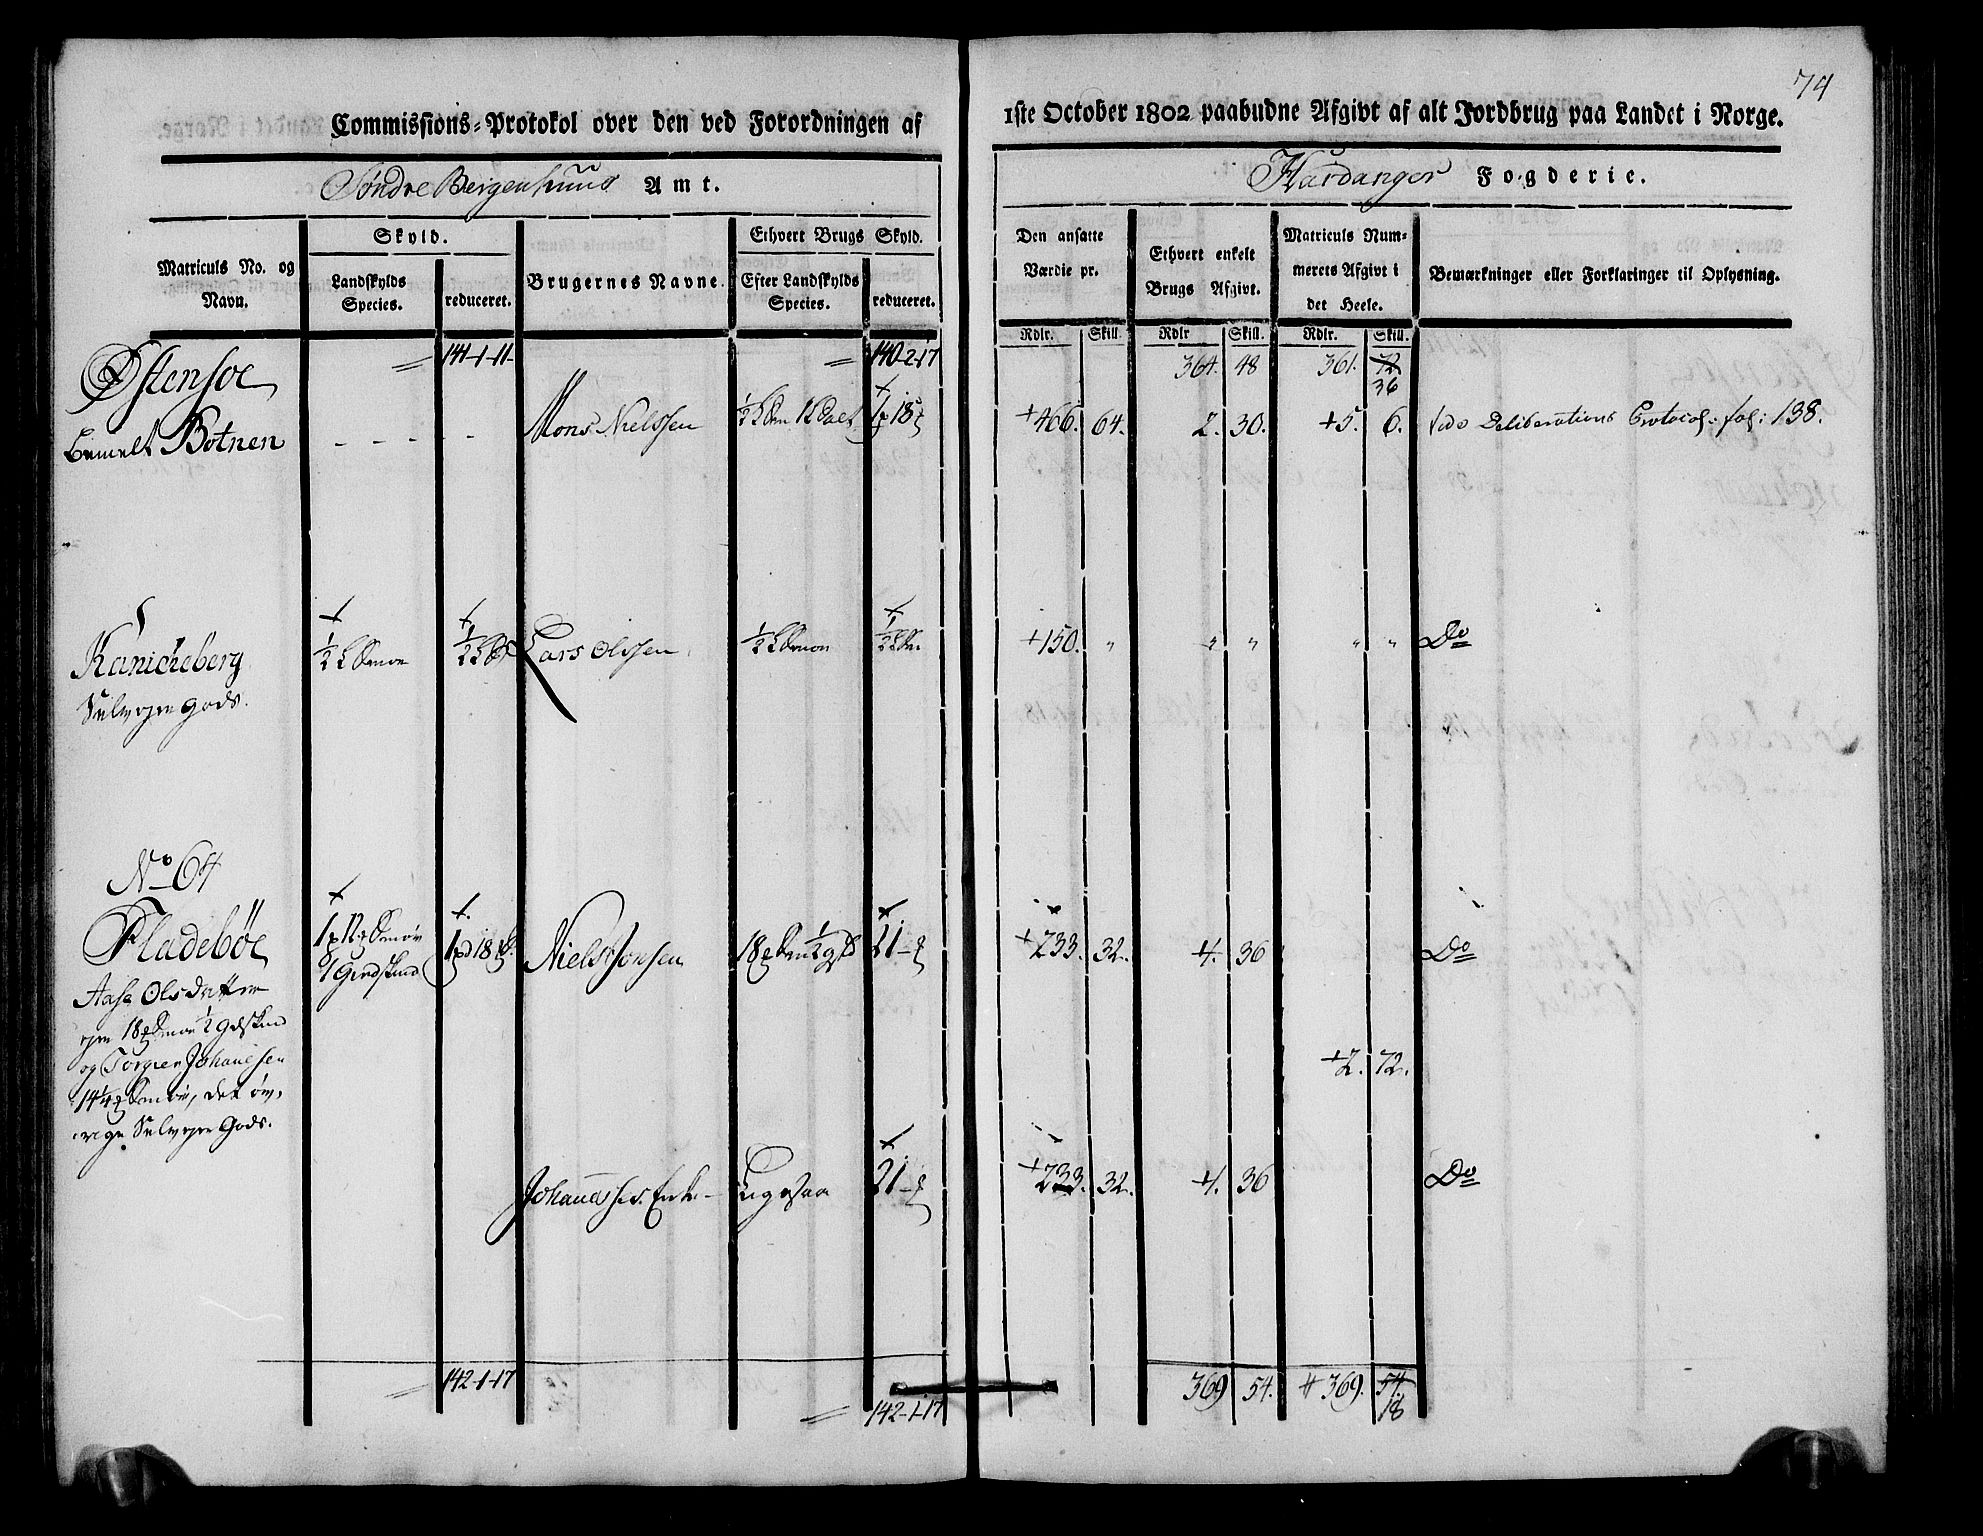 74
Commissions-Protokol over den ved Forordningen af 1ste October 1802 paabudne Afgivt af alt Jordbrug paa Landet i Norge.
Søndre Bergenhuus Amt. Hardanger Fogderie.
Skyld. Ethvert Brugs Skyld.
Matriculs No. og Navn. Landskylds Species. reduceret. Brugernes Navne. Efter Landskylds Species. reduceret. Den ansatte Værdie pr. Ethvert enkelt Brugs Afgivt. Matriculs Nummerets Afgivt i det Heele. Bemærkninger eller Forklaringer til Oplysning.
Rdlr. Skill. Rdlr Skill. Rdlr. Skill.
Østensøe 141-1-11- 140-2-17 364. 48 361. 72
36
Botnen Mons Nielssen +466. 64. 2. 30. +5. 6. vide Deliberations Protocol: fol: 138.
Kanickeberg Lars Olssen +150. " " " " " Do
Selveyer Gods.
No 64
Fladebøe Niels Jonsen 21 +233. 32. 4. 36 Do
Aase Olsdatter
og Torgier Johanesen +2. 72.
Selveyer Gods.
Johanes Enke Ligesaa 21 +233. 32. 4. 36 Do
142-1-17 142-1-17 369 54. # 369. 54.
18